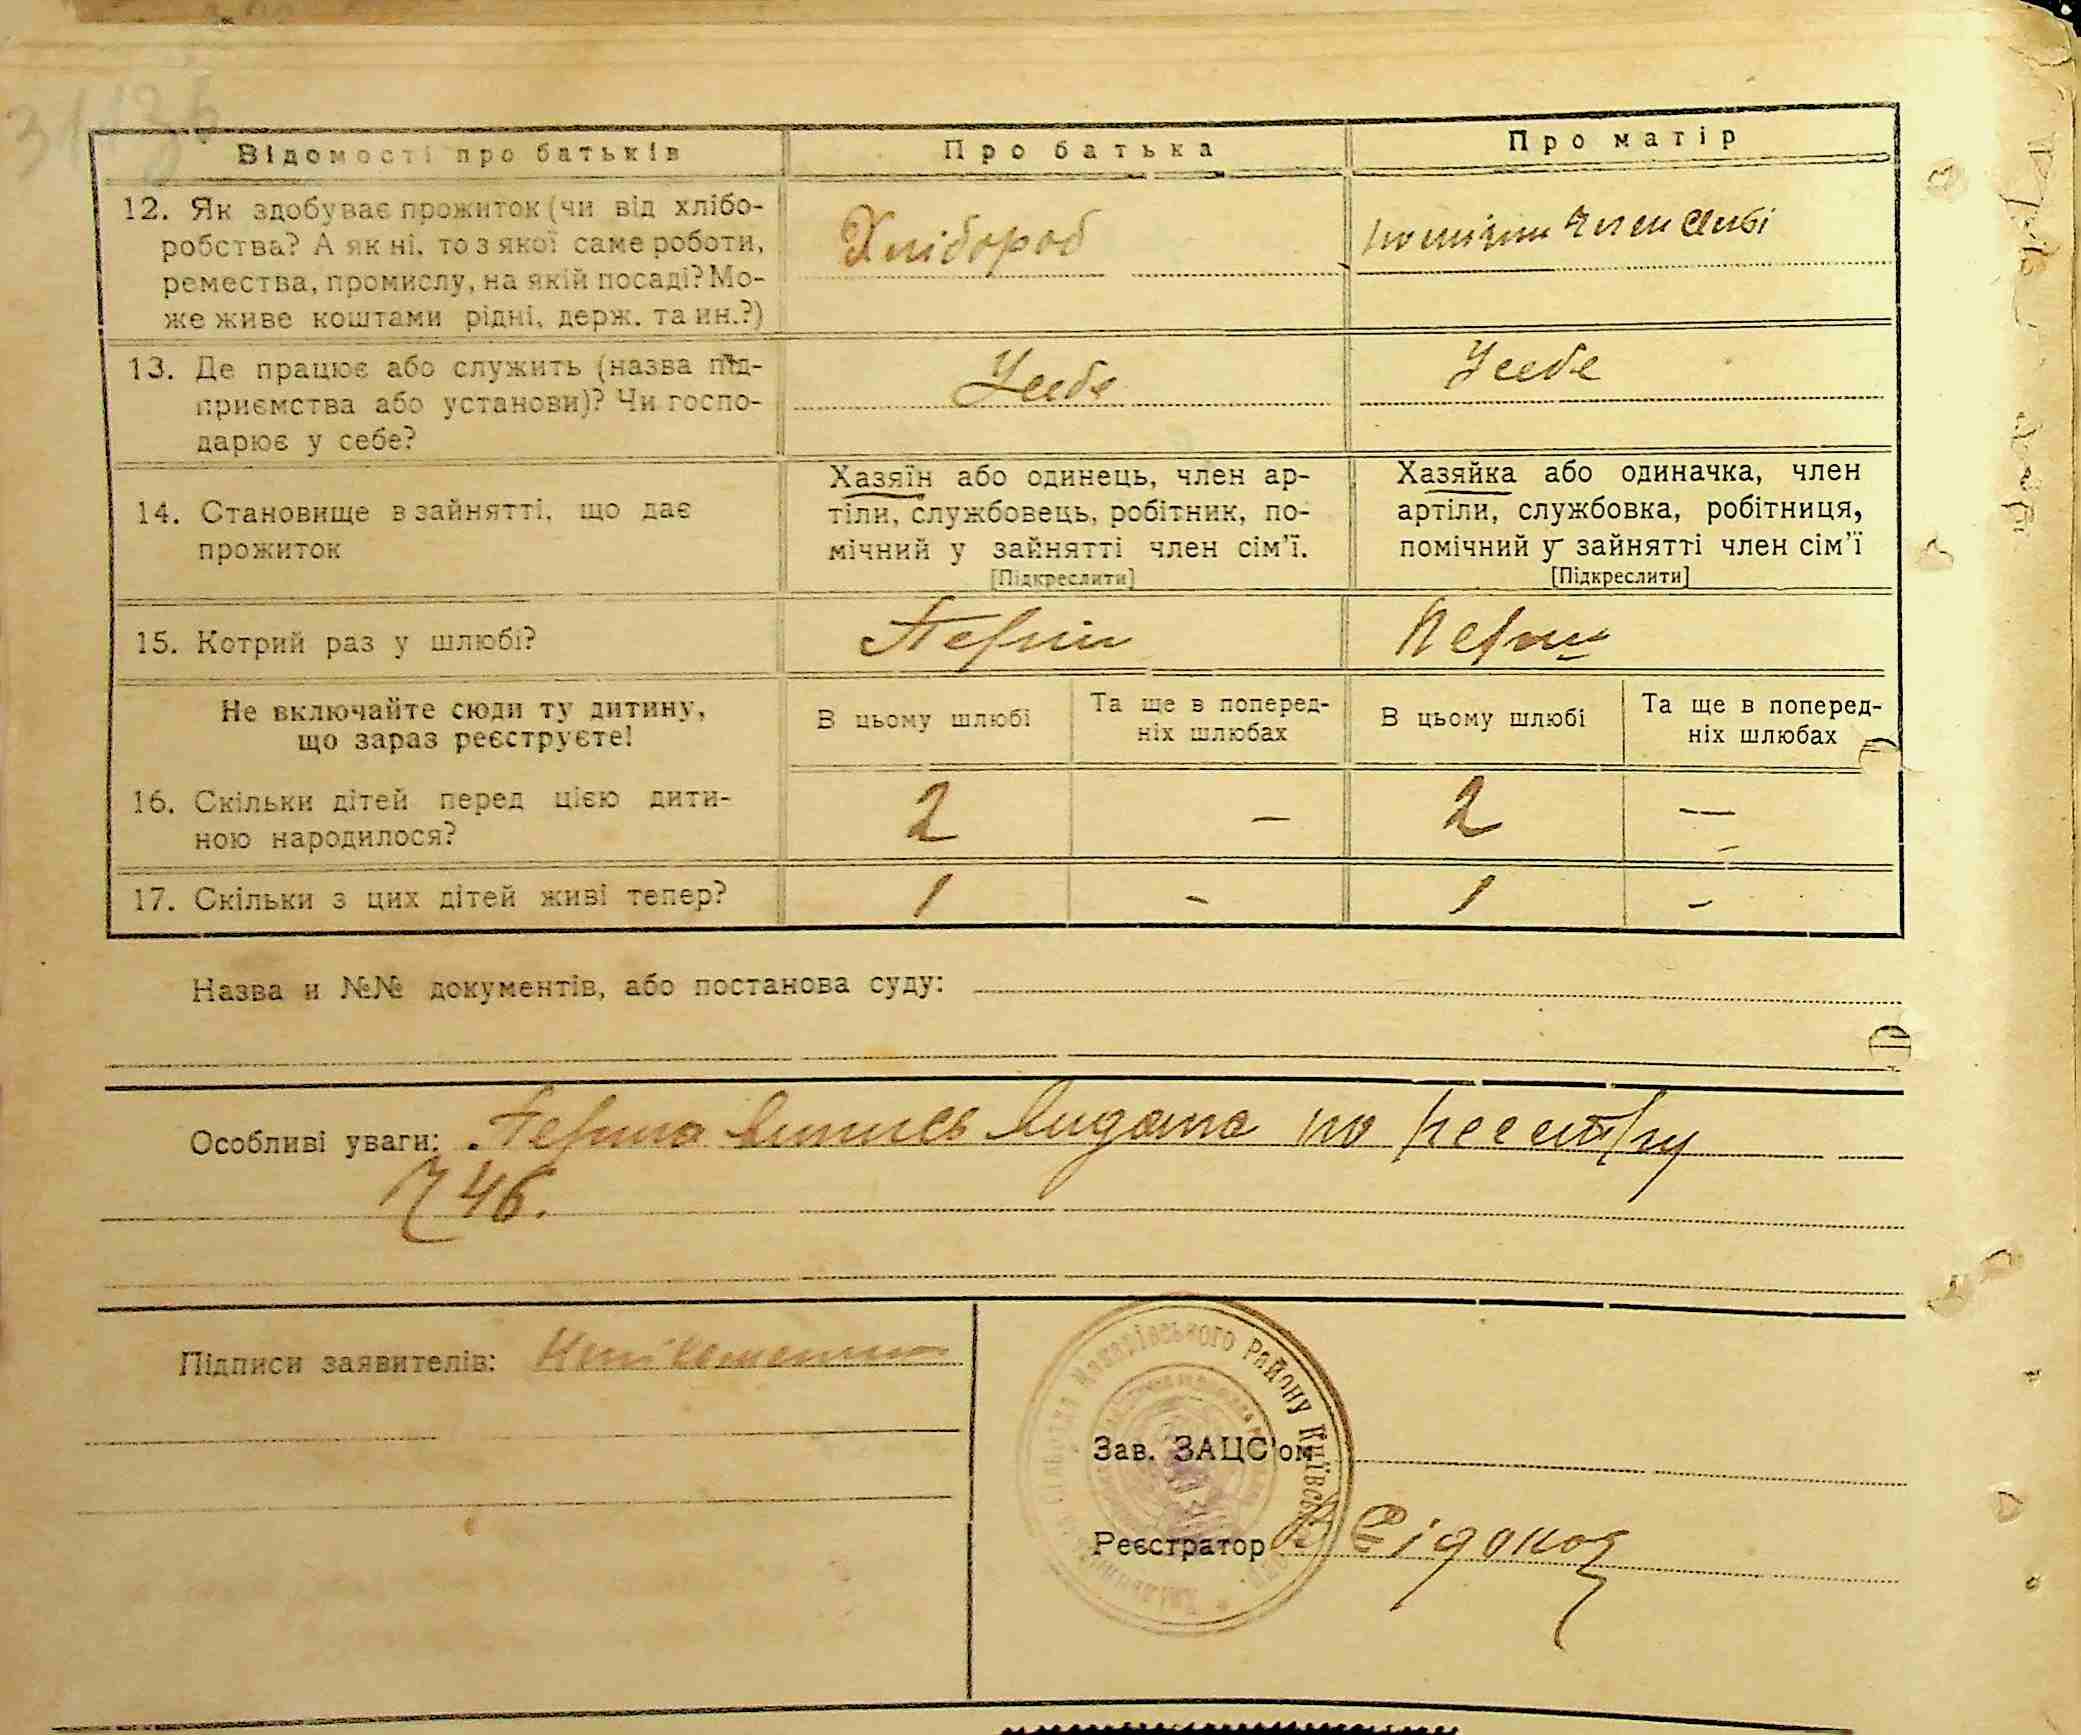 Відомості про батьків
Про батька
Про матір
12. Як здобуває прожиток (чи від хлібо-
робства? А як ні, то з якої саме роботи,
ремества, промислу, на якій посаді? Мо-
же живе коштами рідні, держ. та ин.?)
Хлібороб
помічни член сімї
13. Де працює або служить (назва під-
приємства або установи)? Чи госпо-
дарює у себе?
У себе
У себе
14. Становище в зайнятті, що дає
прожиток
Хазяїн або одинець, член ар-
тіли, службовець, робітник, по-
мічний у зайнятті член сім'ї.
[Підкреслити]
Хазяйка або одиначка, член
артіли, службовка, робітниця,
помічний у зайнятті член сім'ї
[Підкреслити]
15. Котрий раз у шлюбі?
Перши
Перши
Не включайте сюди ту дитину,
що зараз реєструєте!
В цьому шлюбі
Та ще в поперед-
ніх шлюбах
В цьому шлюбі
Та ще в поперед-
ніх шлюбах
16. Скільки дітей перед цією дити-
ною народилося?
2 — 2 —
17. Скільки з цих дітей живі тепер?
1 - 1 -
Назва и №№ документів, або постанова суду:
Особливі уваги: Перша випись видана по реєстру
746.
Підписи заявителів:
Макарівського Району Київськ
Зав. ЗАЦС'ом
Реєстратор